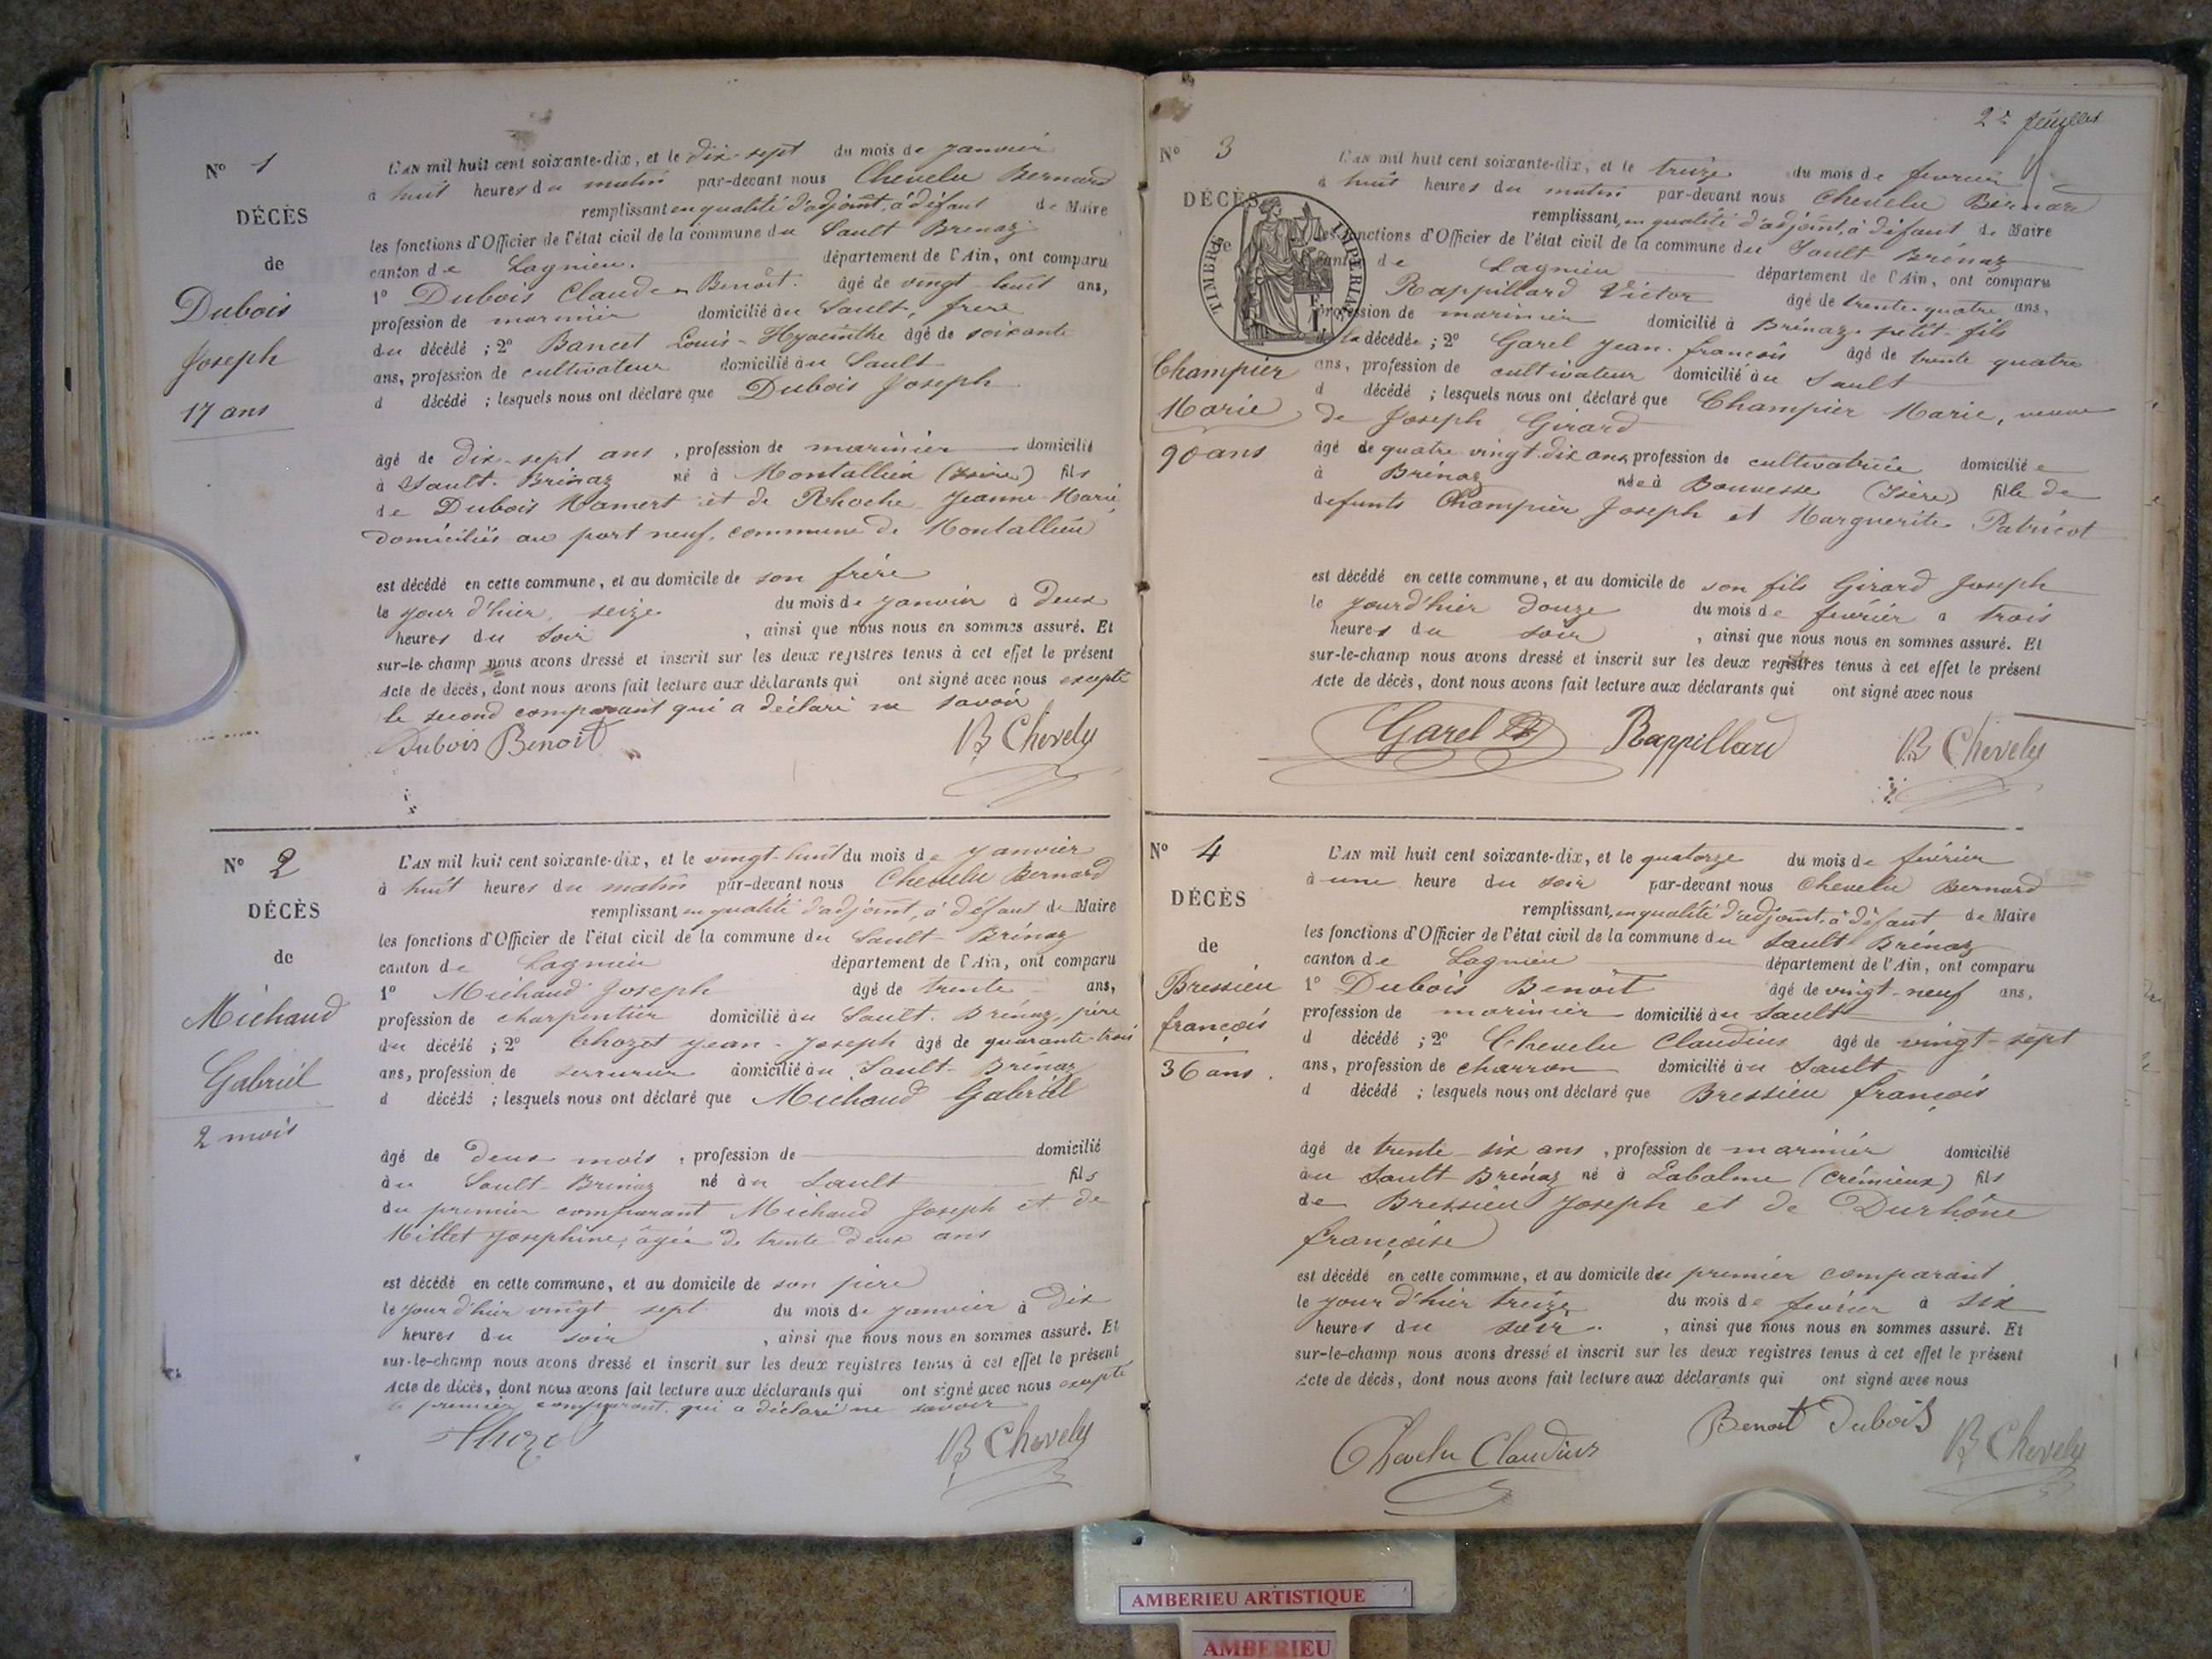 No 1
DÉCÈS
de
Dubois
Joseph
17 ans
L'AN mil huit cent soixante-dix, et le dix-sept du mois de janvier
à huit heures du matin par-devant nous Chevelu Bernard
remplissant en qualité d'adjoint, à défaut de Maire
les fonctions d'Officier de l'état civil de la commune du Sault Brenaz
canton de Lagnieu. département de l'Ain, ont comparu
1° Dubois Claude Benoît. âgé de vingt-huit ans,
profession de marinier domicilié au Sault, frère
du décédé ; 2° Bancet Louis-Hyacinthe âgé de soixante
ans, profession de cultivateur domicilié au Sault
d décédé ; lesquels nous ont déclaré que Dubois Joseph
âgé de dix-sept ans, profession de marinier domicilié
à Sault-Brénaz né à Montallieu (Isère) fils
de Dubois Mamert et de Rhoche Jeanne-Marie
domiciliés au port neuf, commune de Montallieu
est décédé en cette commune, et au domicile de son frère
le jour d'hier, seize du mois de janvier à deux
heures du soir, ainsi que nous nous en sommes assuré. Et
sur-le-champ nous avons dressé et inscrit sur les deux registres tenus à cet effet le présent
Acte de décès, dont nous avons fait lecture aux déclarants qui ont signé avec nous excepté
le second comparant qui a déclaré ne savoir
Dubois Benoit B Chevelu
No 2
DÉCÈS
de
Michaud
Gabriel
2 mois
L'AN mil huit cent soixante-dix, et le vingt-huit du mois de janvier
à huit heures du matin par-devant nous Chevelu Bernard
remplissant en qualité d'adjoint, à défaut de Maire
les fonctions d'Officier de l'état civil de la commune du Sault-Brénaz
canton de Lagnieu département de l'Ain, ont comparu
1° Michaud Joseph âgé de trente ans,
profession de charpentier domicilié au Sault-Brénaz, père
du décédé ; 2° Chozet Jean-Joseph âgé de quarante-trois
ans, profession de serrurier domicilié au Sault-Brénaz
d décédé ; lesquels nous ont déclaré que Michaud Gabriel
âgé de deux mois, profession de domicilié
au Sault-Brénaz né au Sault fils
du premier comparant Michaud Joseph et de
Millet Josephine, âgée de trente deux ans
est décédé en cette commune, et au domicile de son père
le jour d'hier vingt sept du mois de janvier à dix
heures du soir, ainsi que nous nous en sommes assuré. Et
sur-le-champ nous avons dressé et inscrit sur les deux registres tenus à cet effet le présent
Acte de décès, dont nous avons fait lecture aux déclarants qui ont signé avec nous excepté
le premier comparant qui a déclaré ne savoir
B Chevelu
2e feuillet
No 3
DÉCÈS
de
TIMBRE IMPERIAL
Champier
Marie
90 ans
L'AN mil huit cent soixante-dix, et le treize du mois de février
à huit heures du matin par-devant nous Chevelu Bernard
remplissant, en qualité d'adjoint, à défaut de Maire
les fonctions d'Officier de l'état civil de la commune du Sault Brénaz
canton de Lagnieu département de l'Ain, ont comparu
Rappillard Victor âgé de trente-quatre ans,
profession de marinier domicilié à Brénaz petit-fils
de la décédée ; 2° Garel Jean-françois âgé de trente quatre
ans, profession de cultivateur domicilié au Sault
d décédé ; lesquels nous ont déclaré que Champier Marie, veuve
de Joseph Girard
âgé de quatre vingt dix ans, profession de cultivatrice domiciliée
à Brénaz née à Bouvesse (Isère) fille de
defunts Champier Joseph et Marguerite Patricot
est décédé en cette commune, et au domicile de son fils Girard Joseph
le jourd'hier douze du mois de février à trois
heures du soir, ainsi que nous nous en sommes assuré. Et
sur-le-champ nous avons dressé et inscrit sur les deux registres tenus à cet effet le présent
Acte de décès, dont nous avons fait lecture aux déclarants qui ont signé avec nous
Garel Rappillard B Chevelu
No 4
DÉCÈS
de
Bressieu
françois
36 ans.
L'AN mil huit cent soixante-dix, et le quatorze du mois de février
à une heure du soir par-devant nous Chevelu Bernard
remplissant, en qualité d'adjoint, à défaut de Maire
les fonctions d'Officier de l'état civil de la commune du Sault Brénaz
canton de Lagnieu département de l'Ain, ont comparu
1° Dubois Benoit âgé de vingt-neuf ans,
profession de marinier domicilié au Sault
d décédé ; 2° Chevelu Claudius âgé de vingt-sept
ans, profession de charron domicilié au Sault
d décédé ; lesquels nous ont déclaré que Bressieu françois
âgé de trente-six ans, profession de marinier domicilié
au Sault-Brénaz né à Labalme (Crémieux) fils
de Bressieu Joseph et de Durhône
françoise
est décédé en cette commune, et au domicile du premier comparant
le jour d'hier treize du mois de février à six
heures du soir, ainsi que nous nous en sommes assuré. Et
sur-le-champ nous avons dressé et inscrit sur les deux registres tenus à cet effet le présent
Acte de décès, dont nous avons fait lecture aux déclarants qui ont signé avec nous
Chevelu Claudius Benoit Dubois B Chevelu
AMBERIEU ARTISTIQUE
AMBERIEU